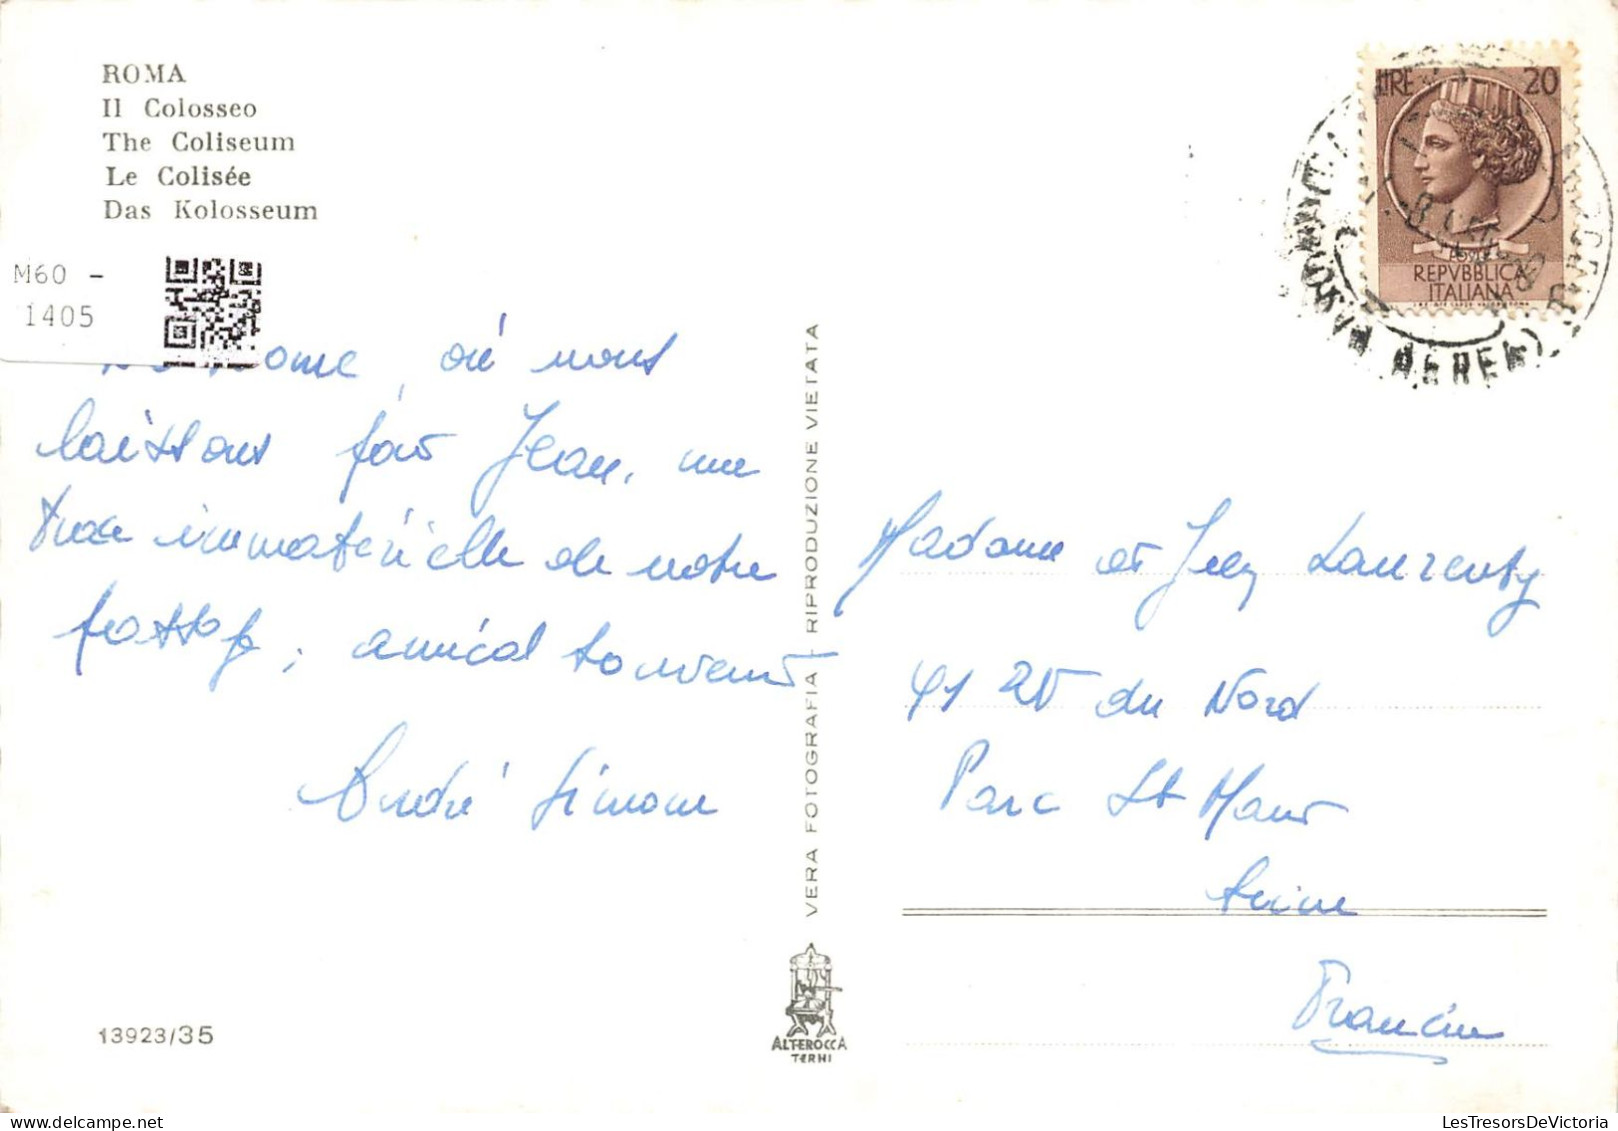 ROMA
Il Colosseo
The Coliseum
Le Colisée
Das Kolosseum
M60 -
1405
LIRE 20
POSTE
REPVBBLICA
ITALIANA
Rome, où nous
laissons, Jean, une
immatérielle de notre
passage, amical souvenir
André Simone
VERA FOTOGRAFIA - RIPRODUZIONE VIETATA
Madame et Laurenty
41 du Nord
Parc St Maur
Seine
France
13923/35
ALTEROCCA
TERNI
LesTresorsDeVictoria